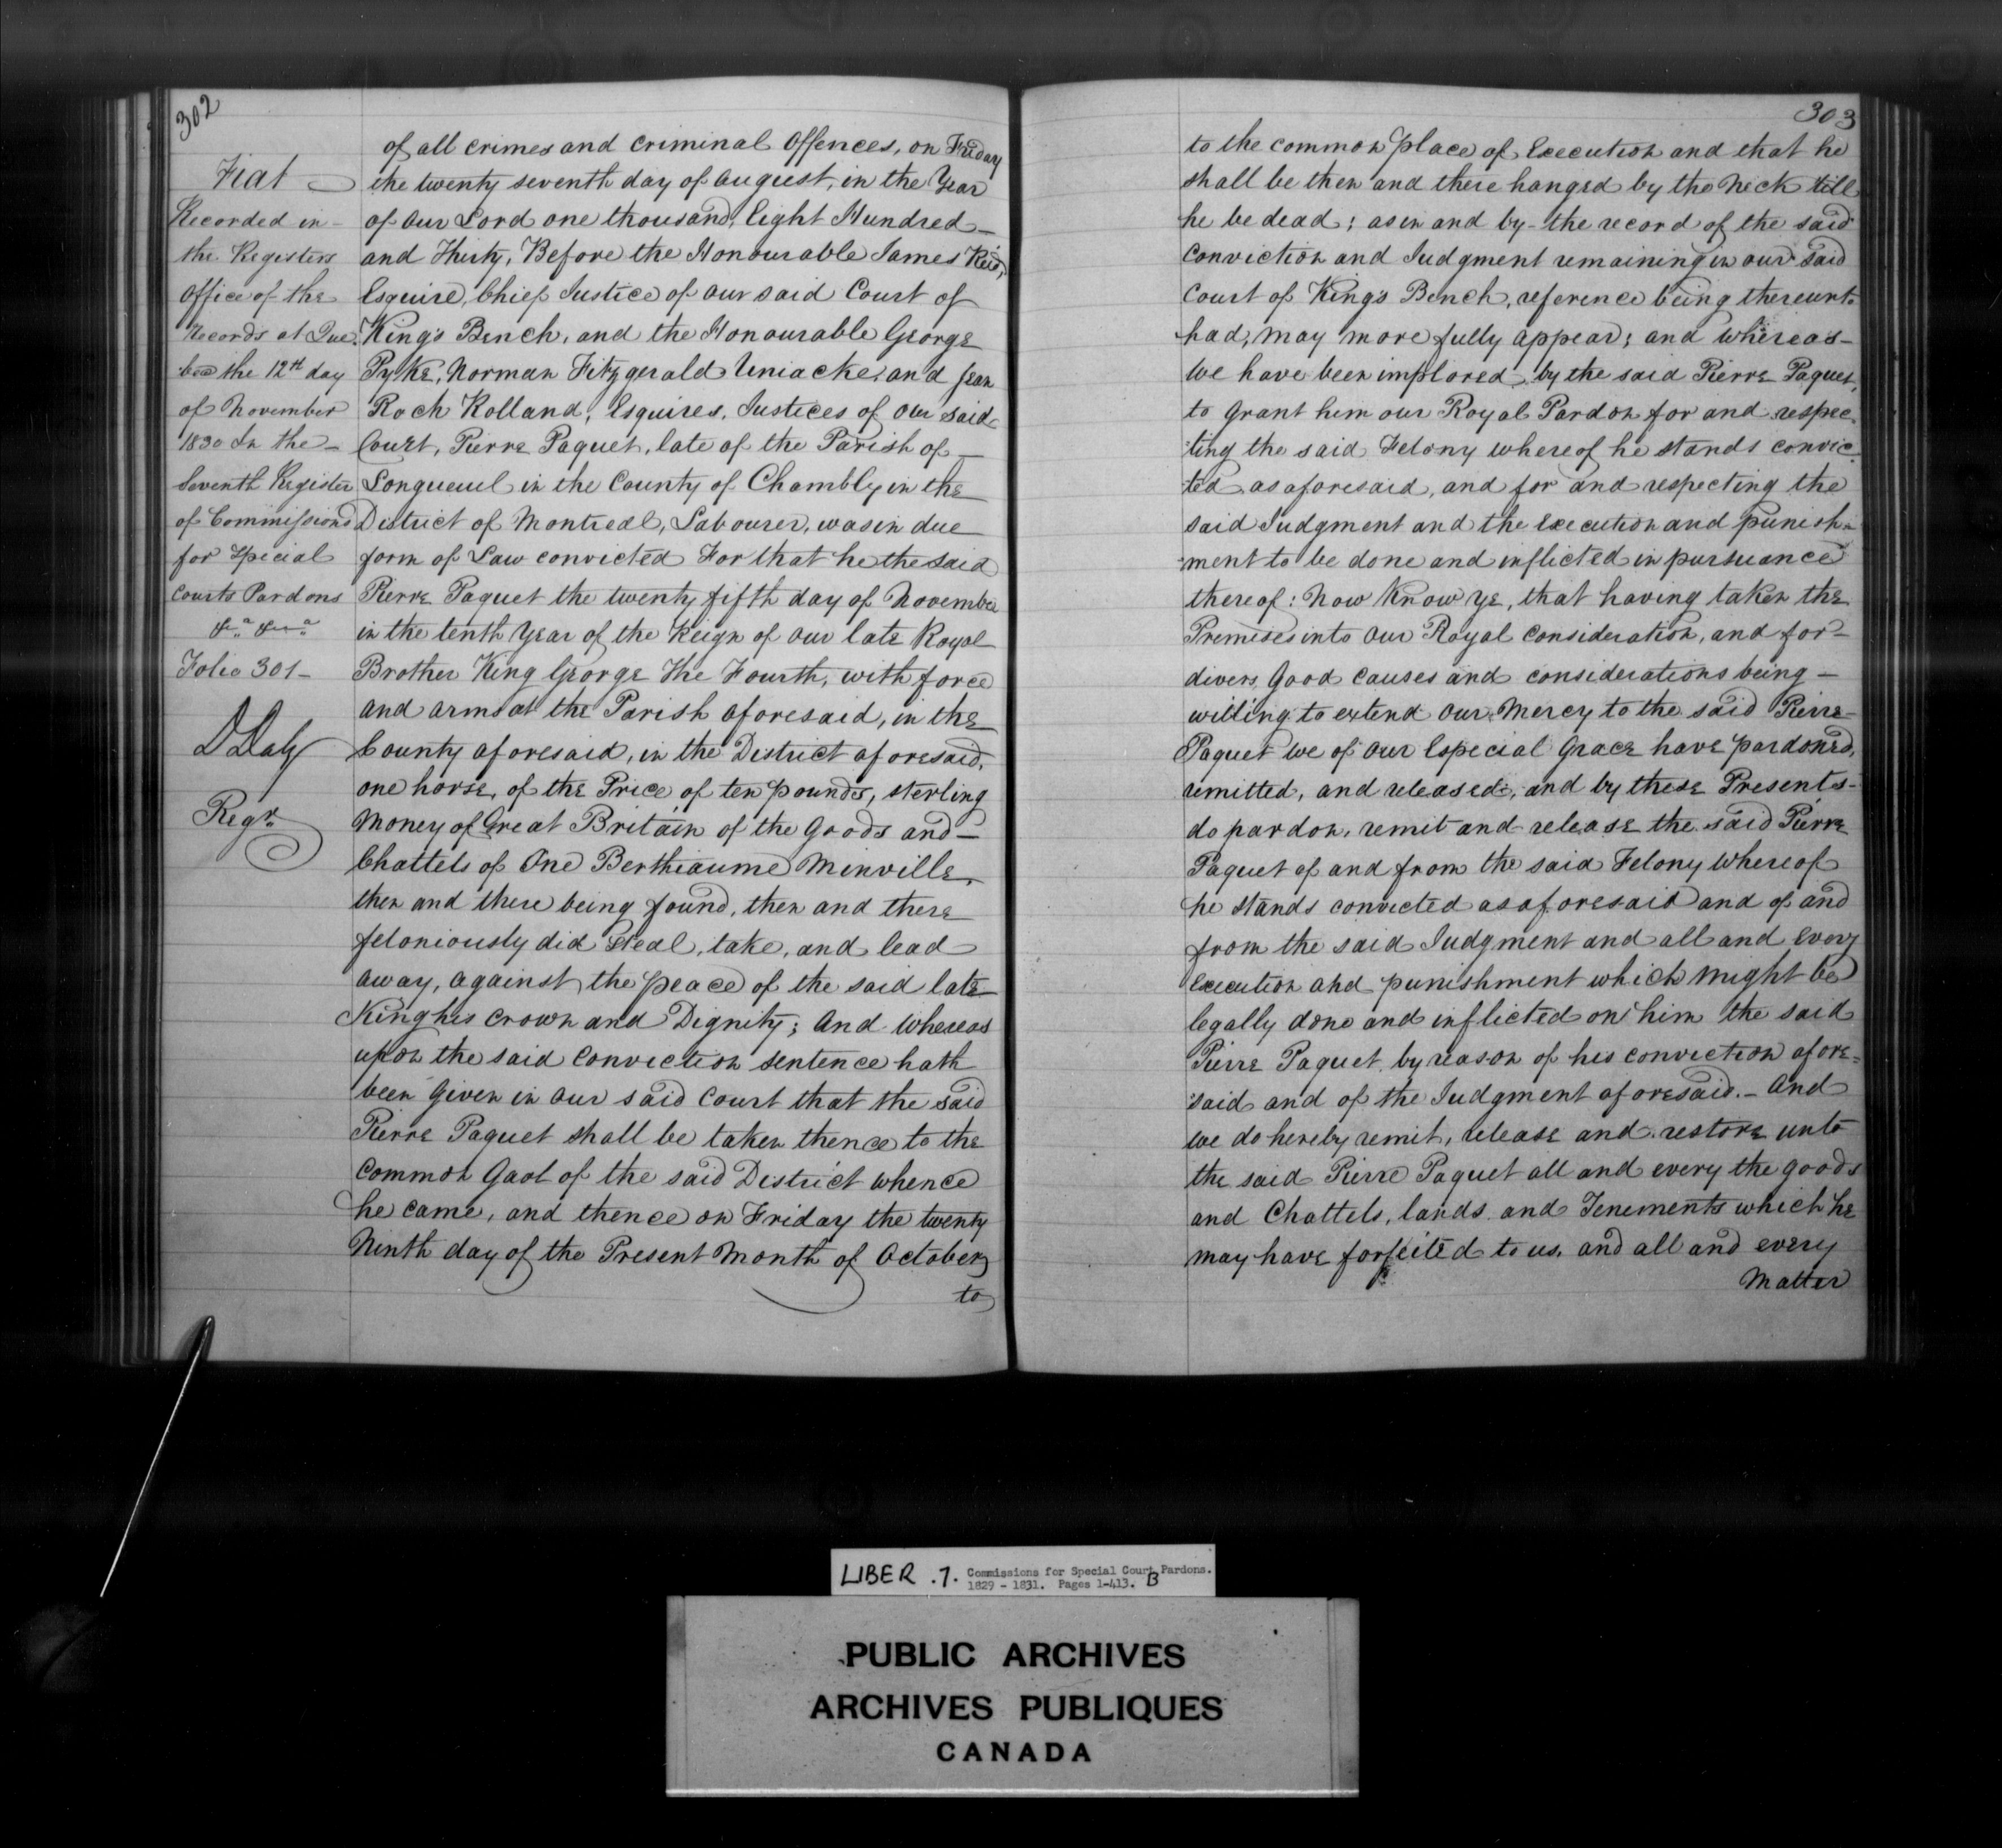 302
Fiat
Recorded in
the Registers
Office of the
Records at Que
bec the 12th day
of November
1830 In the
Seventh Register
of Commissions
for Special
Courts Pardons
&a &a
Folio 301
D Daly
Regr
of all crimes and criminal Offences, on Friday
the twenty seventh day of August, in the Year
of Our Lord one thousand, Eight Hundred
and Thirty, Before the Honourable James Reid,
Esquire, Chief Justice of our said Court of
King's Bench, and the Honourable George
Pyke, Norman Fitzgerald Uniacke, and Jean
Roch Rolland, Esquires, Justices of our said
Court, Pierre Paquet, late of the Parish of
Longueuil in the County of Chambly in the
District of Montreal, Labourer, was in due
form of Law convicted For that he the said
Pierre Paquet the twenty fifth day of November
in the tenth Year of the Reign of our late Royal
Brother King George The Fourth, with force
and arms at the Parish aforesaid, in the
County aforesaid, in the District aforesaid,
one horse, of the Price of ten pounds, sterling
Money of Great Britain of the Goods and
Chattels of One Berthiaume Minville,
then and there being found, then and there
feloniously did Steal, take, and lead
away, against the peace of the said late
King his crown and Dignity; And Whereas
upon the said Conviction sentence hath
been Given in our said Court that the said
Pierre Paquet shall be taken thence to the
Common Gaol of the said District whence
he came, and thence on Friday the twenty
Ninth day of the Present Month of October
to
303
to the common place of Execution and that he
shall be then and there hanged by the Neck till
he be dead; as in and by the record of the said
Conviction and Judgment remaining in our said
Court of King's Bench, reference being thereunto
had, may more fully appear; and Whereas
We have been implored by the said Pierre Paquet,
to Grant him our Royal Pardon for and respec
ting the said Felony whereof he stands convic
ted as aforesaid, and for and respecting the
said Judgment and the Execution and punish-
ment to be done and inflicted in pursuance
thereof: Now Know Ye, that having taken the
Premises into Our Royal Consideration, and for
divers Good Causes and considerations being
willing to extend our Mercy to the said Pierre
Paquet We of our Especial Grace have pardoned,
remitted, and released, and by these Presents
do pardon, remit and release the said Pierre
Paquet of and from the said Felony Whereof
he stands convicted as aforesaid and of and
from the said Judgment and all and Every
Execution and punishment which might be
legally done and inflicted on him the said
Pierre Paquet by reason of his conviction afore=
said and of the Judgment aforesaid. - And
we do hereby remit, release and restore unto
the said Pierre Paquet all and every the goods
and Chattels, lands and Tenements which he
may have forfeited to us, and all and every
Matter
LIBER .7. Commissions for Special Court Pardons.
1829 - 1831. Pages 1-413. B
PUBLIC ARCHIVES
ARCHIVES PUBLIQUES
CANADA